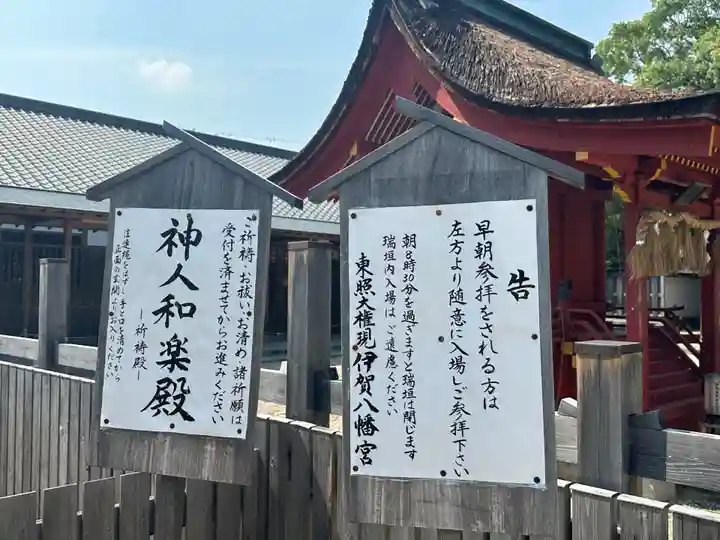 告
早朝参拝をされる方は
左方より随意に入場しご参拝下さい
朝8時30分を過ぎますと瑞垣は閉じます
瑞垣内入場は、ご遠慮ください
東照大権現伊賀八幡宮
ご祈祷・お祓い・お清め・諸祈願は
受付を済ませてからお進みください
神人和楽殿
―祈祷殿―
正面の玄関よりお入りください